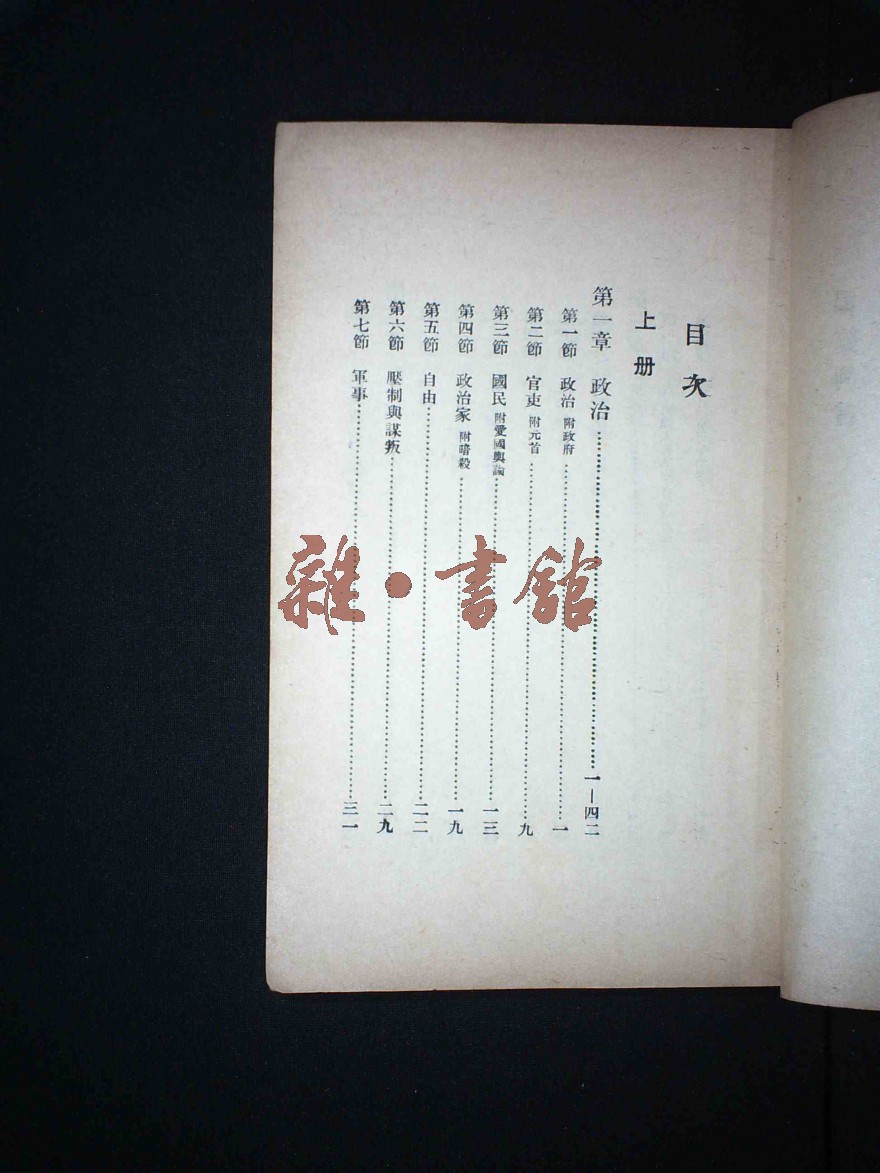 目次
上册
第一章 政治……一—四二
第一節 政治 附政府……一
第二節 官吏 附元首……九
第三節 國民 附愛國輿論……一三
第四節 政治家 附暗殺……一九
第五節 自由……二二
第六節 壓制與謀叛……二九
第七節 軍事……三一
雜·書館